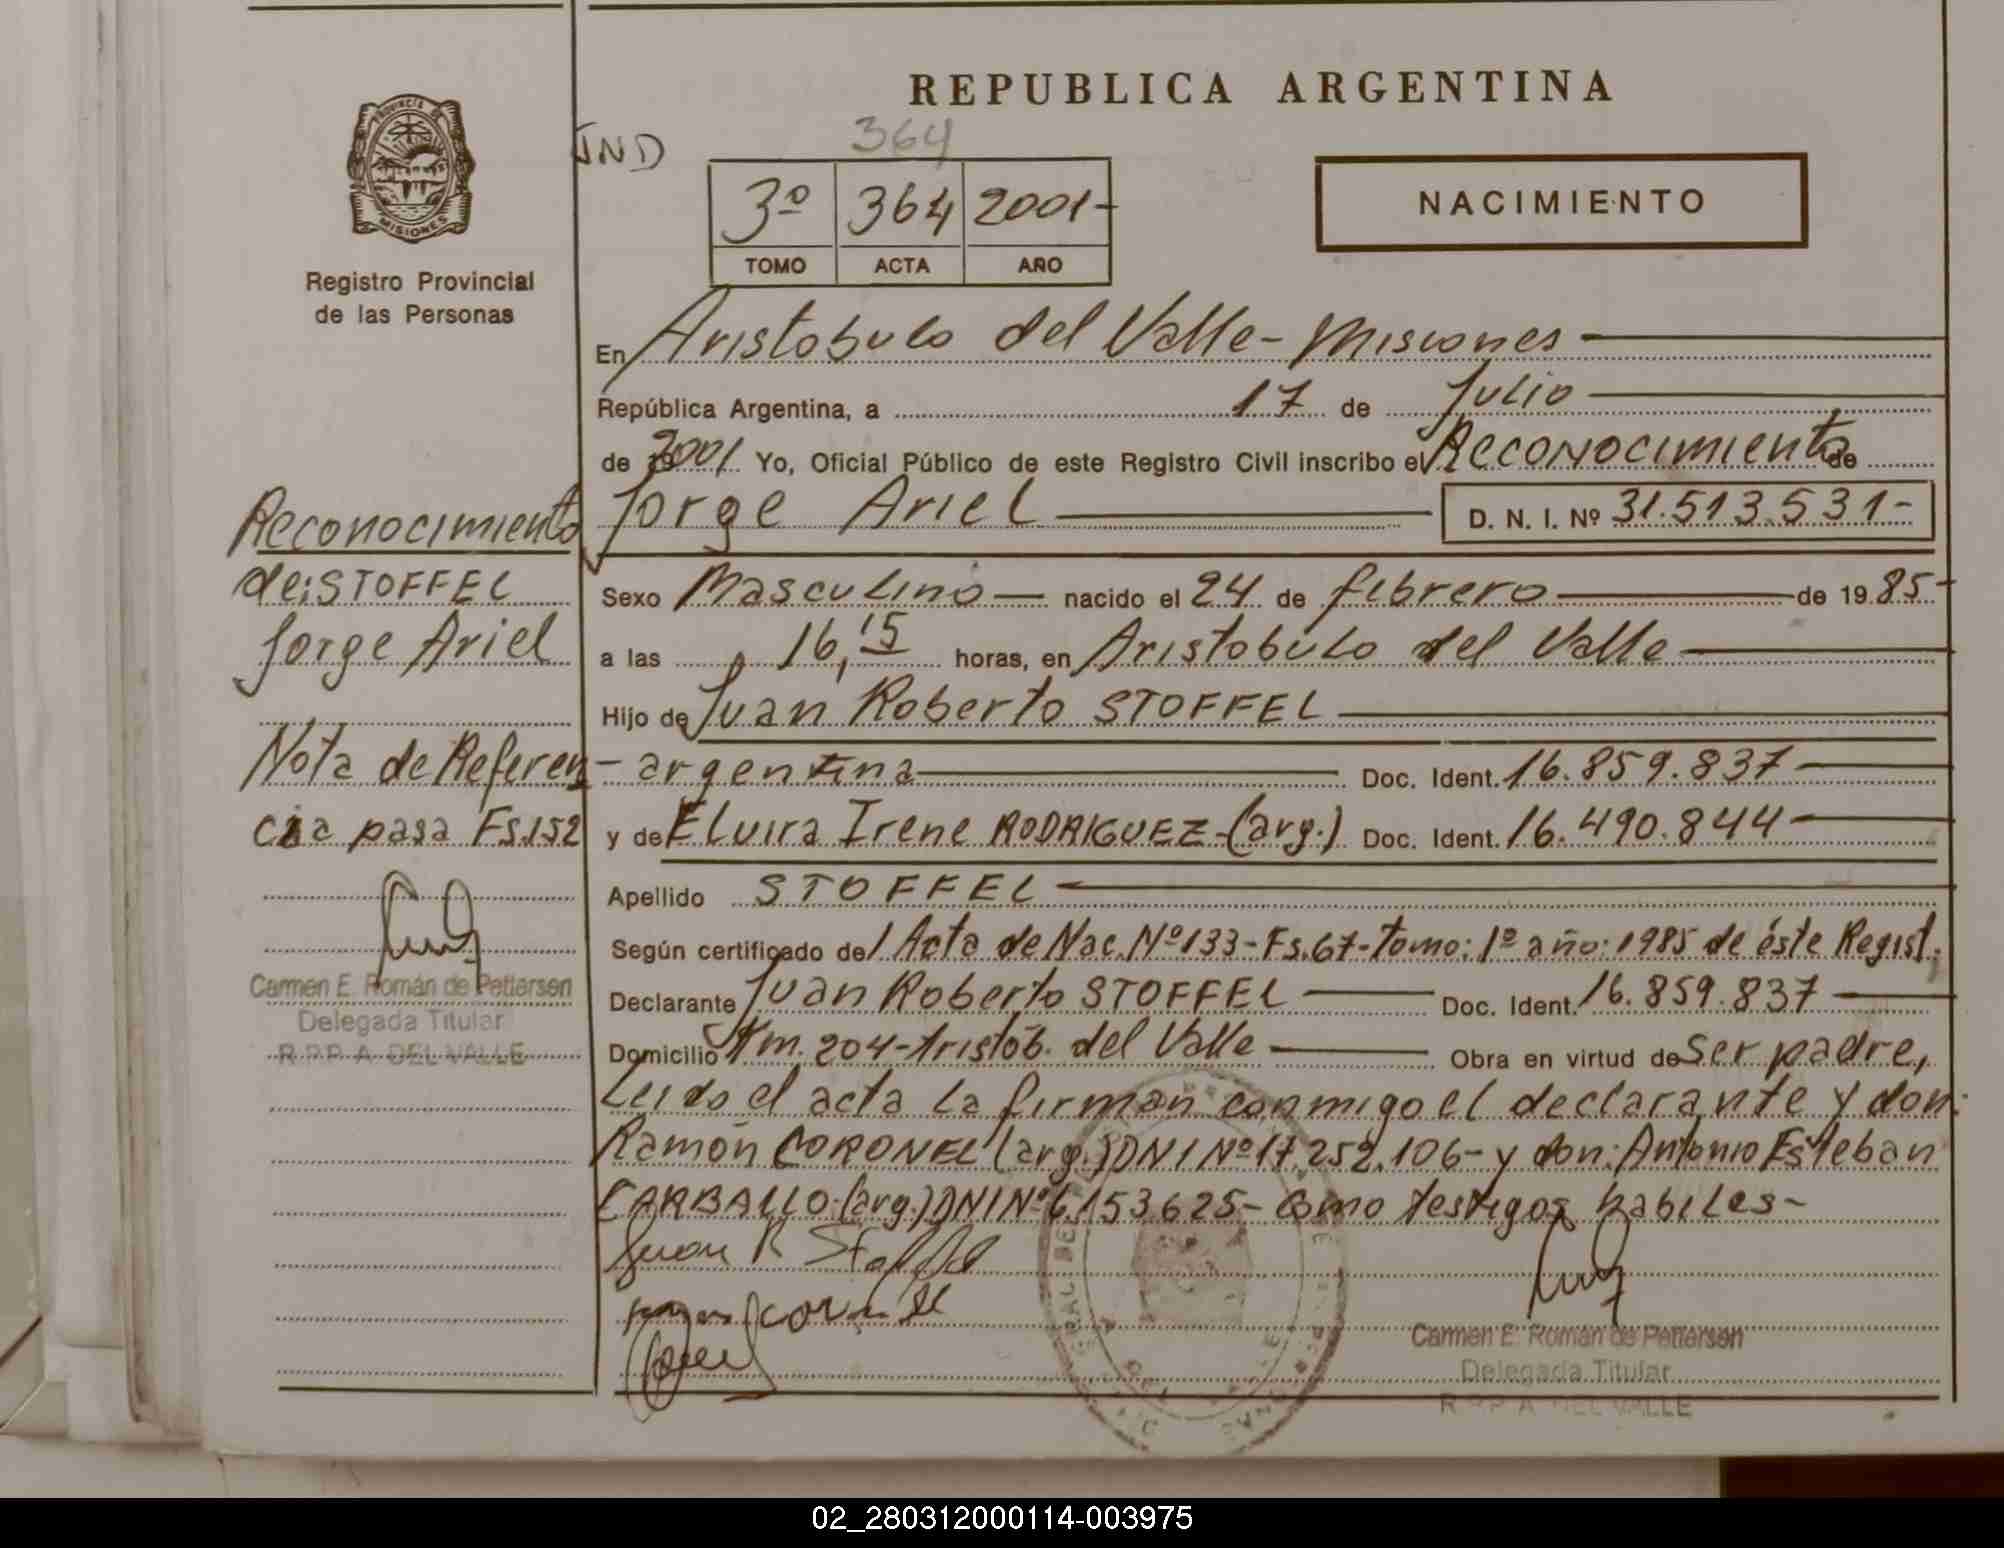 REPUBLICA ARGENTINA
PROVINCIA DE
MISIONES
Registro Provincial
de las Personas
IND
364
3º 364 2001-
TOMO ACTA AÑO
NACIMIENTO
En Aristobulo del Valle - Misiones
República Argentina, a 17 de Julio
de 2001 Yo, Oficial Público de este Registro Civil inscribo el Reconocimiento de
Jorge Ariel D. N. I. Nº 31.513.531-
Sexo Masculino nacido el 24 de febrero de 1985-
a las 16,15 horas, en Aristobulo del Valle
Hijo de Juan Roberto STOFFEL
- argentina Doc. Ident. 16.859.837
y de Elvira Irene RODRIGUEZ-(arg.) Doc. Ident. 16.490.844
Apellido STOFFEL
Según certificado de Acta de Nac. Nº 133-Fs.67-Tomo: 1º año: 1985 de éste Regist.
Declarante Juan Roberto STOFFEL Doc. Ident. 16.859.837
Domicilio Km. 204-Aristób. del Valle Obra en virtud de Ser padre,
Leido el acta la firman conmigo el declarante y don:
Ramón CORONEL (arg.) DNI Nº 17.252.106- y don: Antonio Esteban
CARBALLO-(arg.) DNI Nº 6.153.625- como testigos habiles-
Juan R Stoffel
Carmen E. Román de Pettersen
Delegada Titular
R.P.P. A. DEL VALLE
Reconocimiento
de: STOFFEL
Jorge Ariel
Nota de Referen
cia pasa Fs.152
Carmen E. Román de Pettersen
Delegada Titular
R.P.P. A. DEL VALLE
02_280312000114-003975